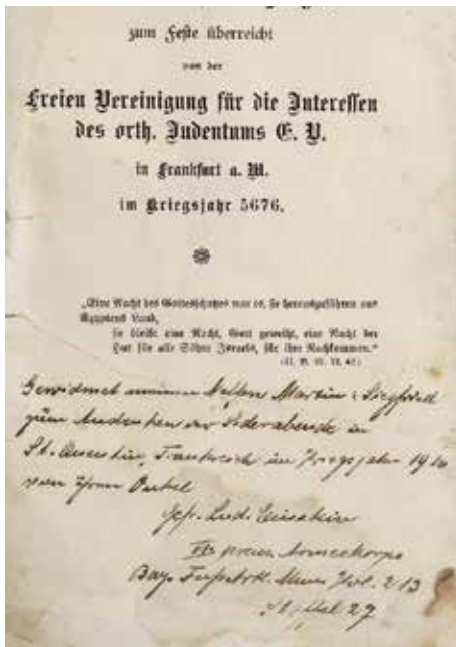 zum Feste überreicht
von der
Freien Vereinigung für die Interessen
des orth. Judentums E. V.
in Frankfurt a. M.
im Kriegsjahr 5676.
„Eine Nacht des Gottesschutzes war es, sie herauszuführen aus
Ägyptens Land,
sie bleibt eine Nacht, Gott geweiht, eine Nacht der
Hut für alle Söhne Israels, für ihre Nachkommen.“
(II. B. M. 42)
Gewidmet meinen Neffen Martin & Siegfried
zum Andenken der Sederabende in
St. Quentin, Frankreich im Kriegsjahre 1916
von Ihrem Onkel
Gefr. Lud.
Armeekorps
Bay.